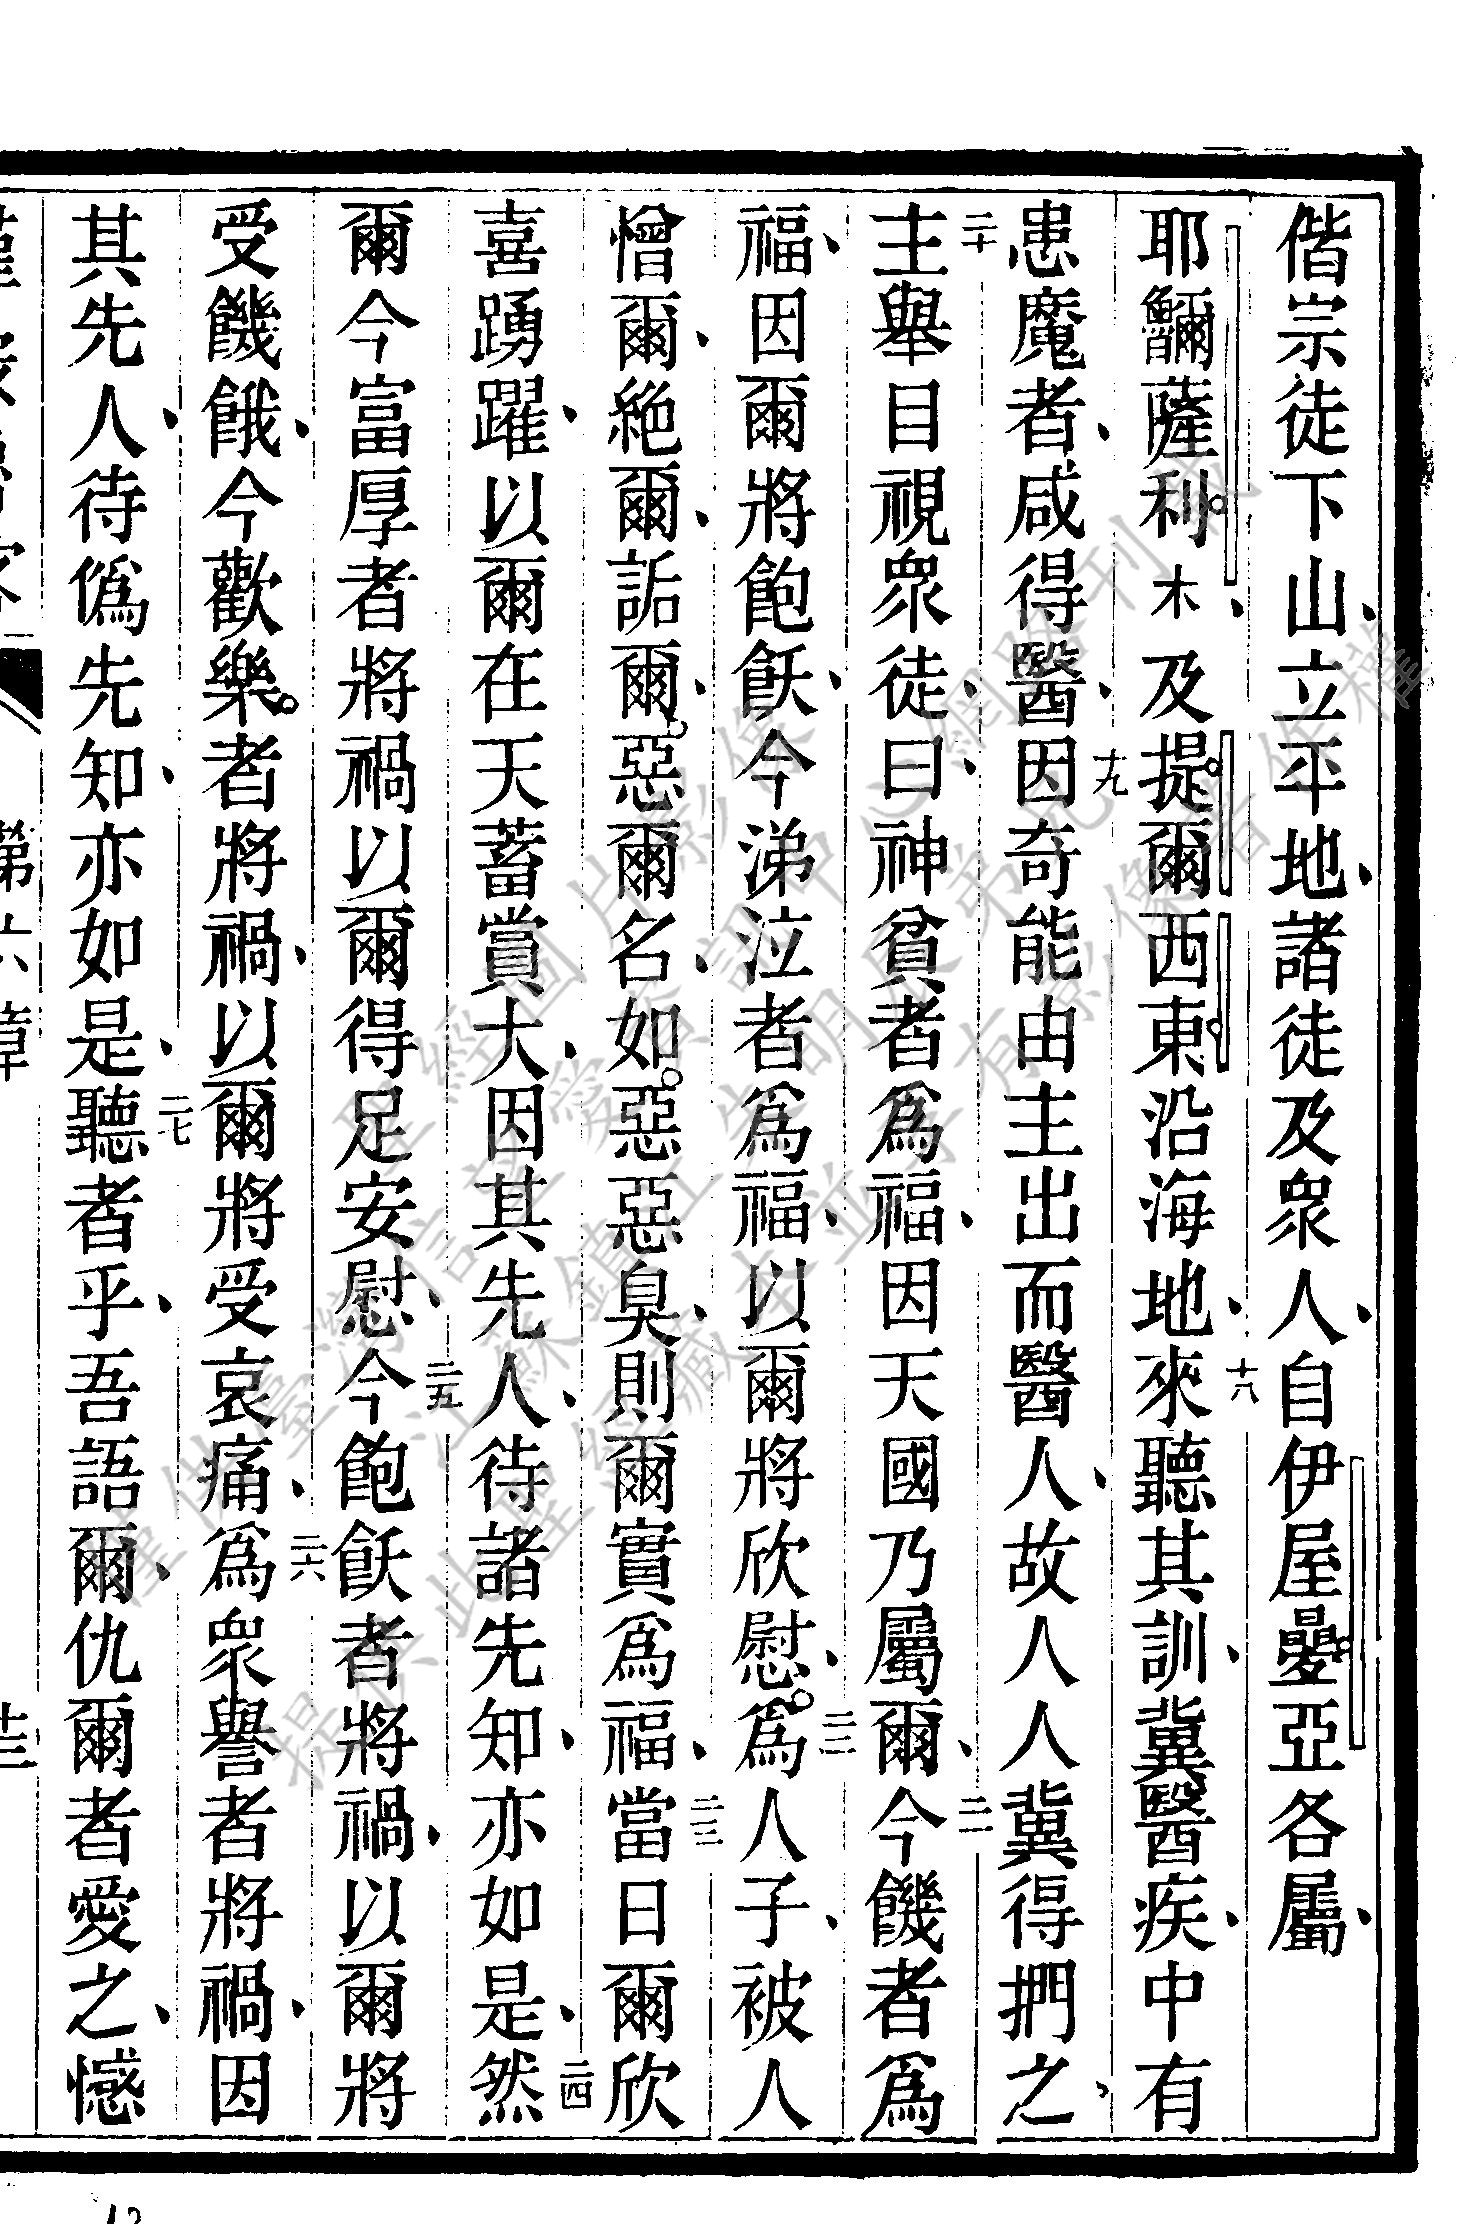 偕宗徒下山、立平地、諸徒及衆人、自伊屋㬪亞各屬、
耶䥘薩利木、及提爾西東沿海地、十八來聽其訓、冀醫疾、中有
患魔者、咸得醫、十九因奇能由主出而醫人、故人人冀得捫之、
二十主舉目視衆徒、曰、神貧者爲福、因天國乃屬爾、二一今饑者爲
福、因爾將飽飫、今涕泣者爲福、以爾將欣慰、二二爲人子、被人
憎爾、絶爾、詬爾、惡爾名、如惡惡臭、則爾實爲福、二三當日爾欣
喜踴躍、以爾在天蓄賞大、因其先人、待諸先知、亦如是、二四然
爾今富厚者將禍、以爾得足安慰、二五今飽飫者將禍、以爾將
受饑餓、今歡樂者將禍、以爾將受哀痛、二六爲衆譽者將禍、因
其先人、待僞先知、亦如是、二七聽者乎、吾語爾、仇爾者愛之、憾
第六章